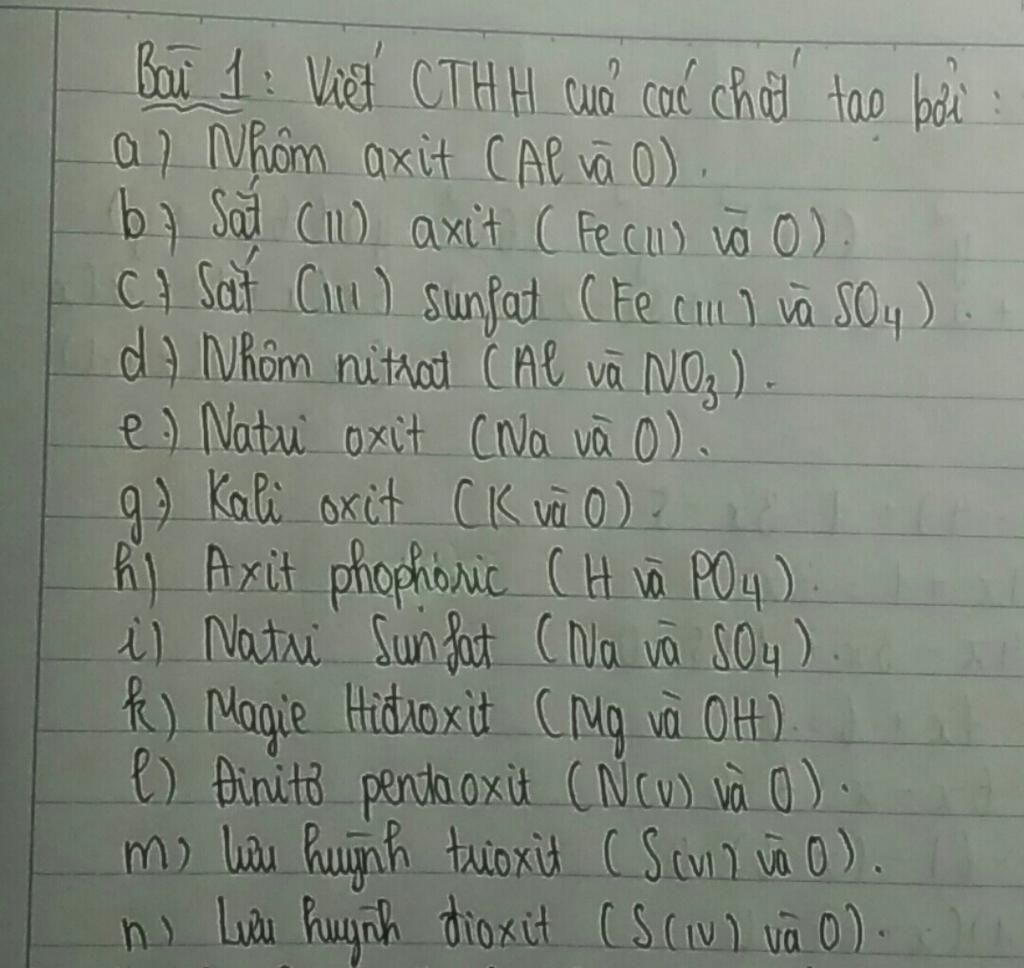 Bài 1: Viết CTHH của các chất tạo bởi:
a) Nhôm axit (Al và O).
b) Sắt (II) axit (Fe(II) và O).
c) Sắt (III) sunfat (Fe (III) và SO₄).
d) Nhôm nitrat (Al và NO₃).
e) Natri oxit (Na và O).
g) Kali oxit (K và O).
h) Axit phophoric (H và PO₄).
i) Natri Sunfat (Na và SO₄).
k) Magie Hiđroxit (Mg và OH)
l) Đinitơ pentaoxit (N(V) và O).
m) Lưu huỳnh trioxit (S(VI) và O).
n) Lưu huỳnh đioxit (S(IV) và O).